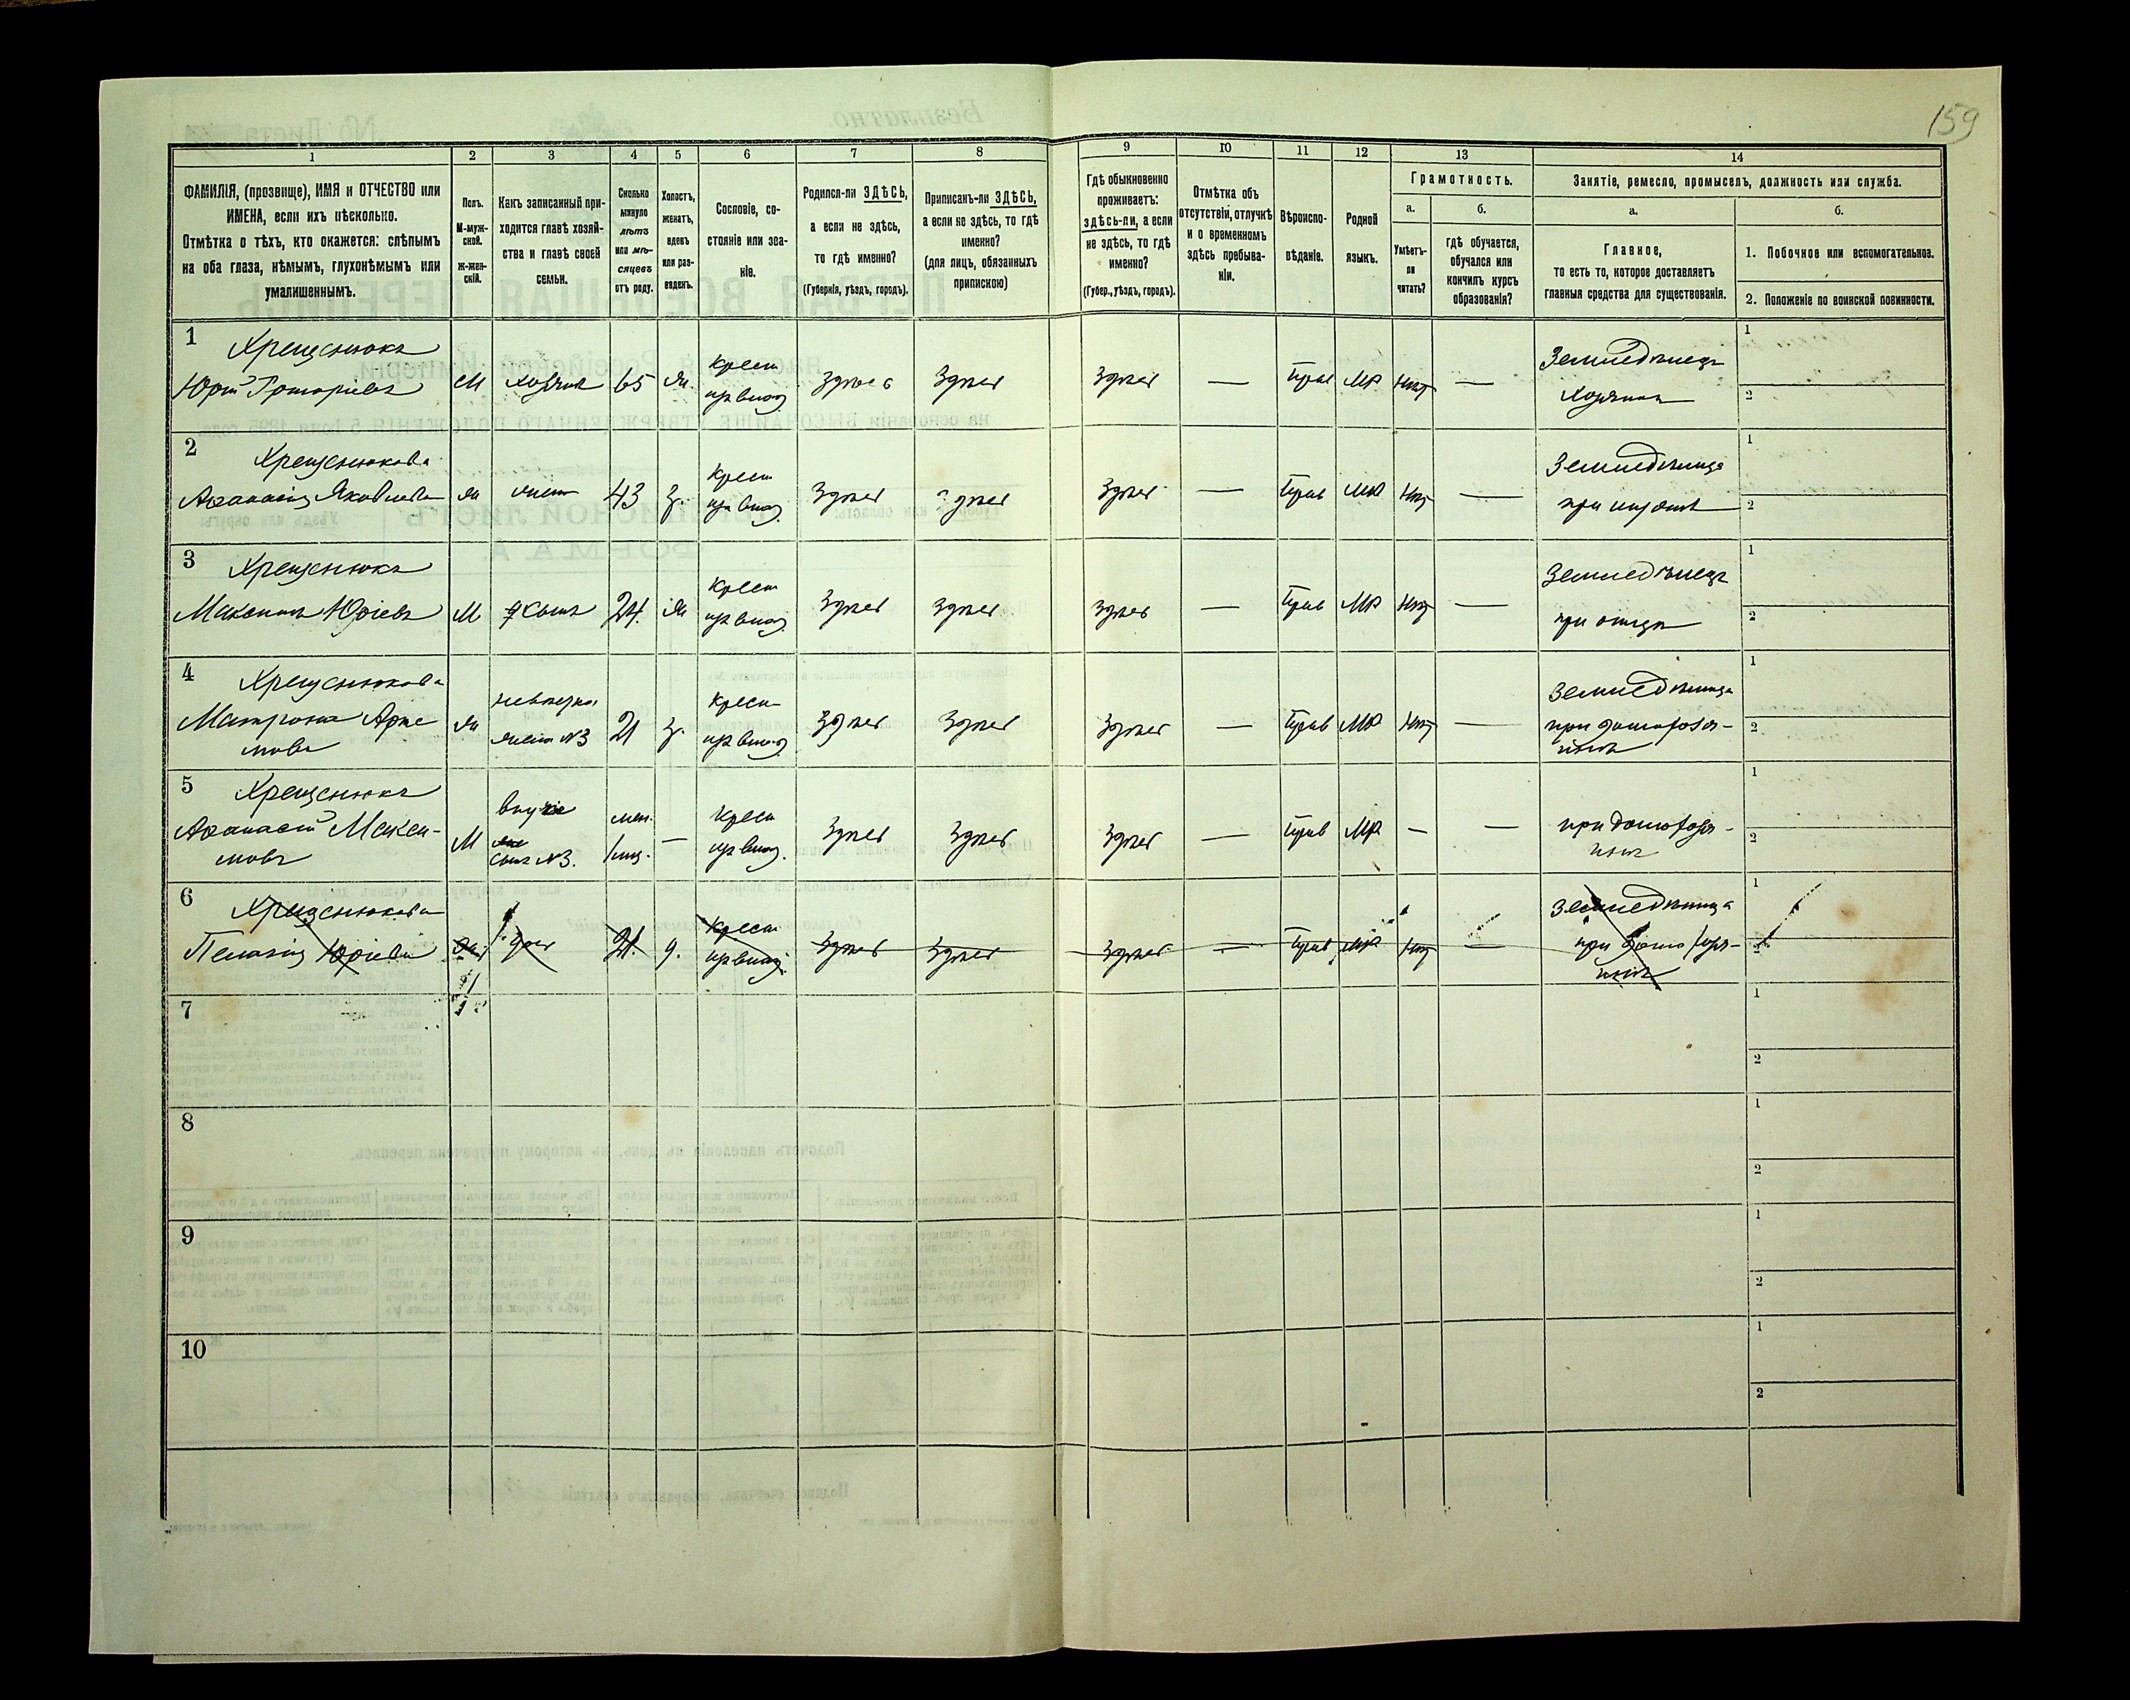 159
1
2
3
4
5
6
7
8
9
10
11
12
13
14
ФАМИЛІЯ, (прозвище), ИМЯ и ОТЧЕСТВО или
ИМЕНА, если ихъ нѣсколько.
Отмѣтка о тѣхъ, кто окажется: слѣпымъ
на оба глаза, нѣмымъ, глухонѣмымъ или
умалишеннымъ.
Полъ.
М-муж-
ской.
Ж-жен-
скій.
Какъ записанный при-
ходится главѣ хозяй-
ства и главѣ своей
семьи.
Сколько
минуло
лѣтъ
или мѣ-
сяцевъ
отъ роду.
Холостъ,
женатъ,
вдовъ
или раз-
веденъ.
Сословіе, со-
стояніе или зва-
ніе.
Родился-ли ЗДѢСЬ,
а если не здѣсь,
то гдѣ именно?
(Губернія, уѣздъ, городъ).
Приписанъ-ли ЗДѢСЬ,
а если не здѣсь, то гдѣ
именно?
(для лицъ, обязанныхъ
припискою)
Гдѣ обыкновенно
проживаетъ:
здѣсь-ли, а если
не здѣсь, то гдѣ
именно?
(Губер., уѣздъ, городъ).
Отмѣтка объ
отсутствіи, отлучкѣ
и о временномъ
здѣсь пребыва-
ніи.
Вѣроиспо-
вѣданіе.
Родной
языкъ.
Грамотность.
а.
б.
Умѣетъ-
ли
читать?
Гдѣ обучается,
обучался или
кончилъ курсъ
образованія?
Занятіе, ремесло, промыселъ, должность или служба.
а.
б.
Главное,
то есть то, которое доставляетъ
главныя средства для существованія.
1. Побочное или вспомогательное.
2. Положеніе по воинской повинности.
1
Хрещенюкъ
Юрій Григоріевъ
М
хозяинъ
65
ж.
крест.
из влад.
Здѣсь
Здѣсь
Здѣсь
—
Прав
МР
Нѣт
—
Земледѣлецъ
хозяинъ
1
2
2
Хрещенюкова
Афанасія Яковлева
ж
жена
43
з.
крест
из влад.
Здѣсь
Здѣсь
Здѣсь
—
Прав
МР
Нѣт
—
Земледѣлица
при мужѣ
1
2
3
Хрещенюкъ
Максимъ Юріевъ
М
сынъ
24.
ж
крест
из влад.
Здѣсь
Здѣсь
Здѣсь
—
Прав
МР
Нѣт
—
Земледѣлецъ
при отцѣ
1
2
4
Хрещенюкова
Матрона Арте
мова
ж
невѣстка
жена №3
21
з.
крест
из влад
Здѣсь
Здѣсь
Здѣсь
—
Прав
МР
Нѣт
—
Земледѣлица
при домохозя-
инѣ
1
2
5
Хрещенюкъ
Афанасій Макси-
мовъ
М
внукъ
сынъ №3.
мен.
1 мц.
—
крест
из влад.
Здѣсь
Здѣсь
Здѣсь
—
Прав
МР
—
—
при домохозя-
инѣ
1
2
6
Хрещенюкова
Пелагія Юріева
ж
дочь
21.
д.
крест
из влад.
Здѣсь
Здѣсь
Здѣсь
—
Прав
МР
Нѣт
—
Земледѣлица
при домохозя-
инѣ
1
2
7
1
2
8
1
2
9
1
2
10
1
2